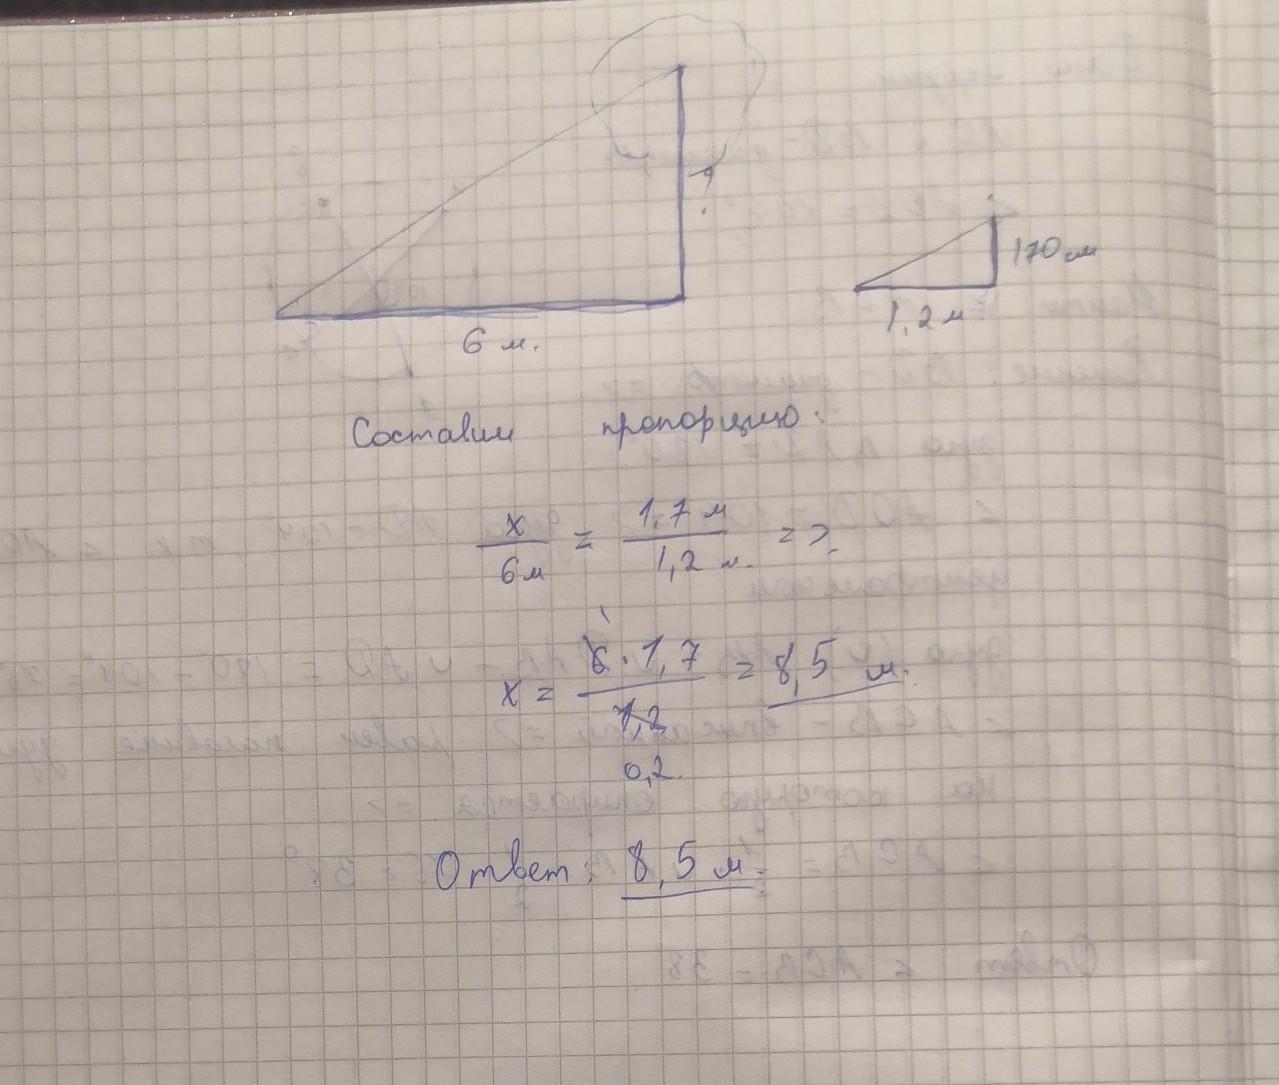 ?
170 см
1,2 м
6 м.
Составим пропорцию:
x/6м = 1,7 м/1,2 м. =>
x = 6·1,7/1,2 = 8,5 м.
1
0,2
Ответ: 8,5 м.